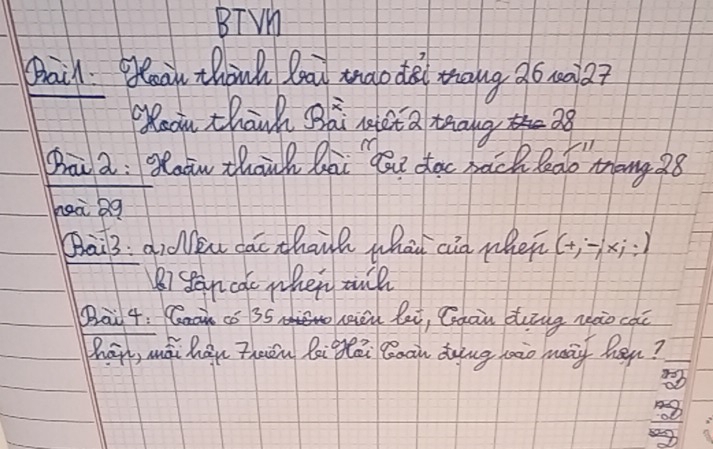 BTVN
Bài 1: Hoàn thành bài trao đổi trang 26 và 27
Hoàn thành Bài viết 2 trang 28
Bài 2: Hoàn thành bài "Tự đọc sách báo" trang 28
và 29
Bài 3: a, Nêu các thành phần của phép (+; -; x; :)
b) Lập các phép tính
Bài 4: Toàn có 35 viên bi, Toàn đựng vào các
hộp, mỗi hộp 7 viên bi Hỏi Toàn đựng vào mấy hộp?